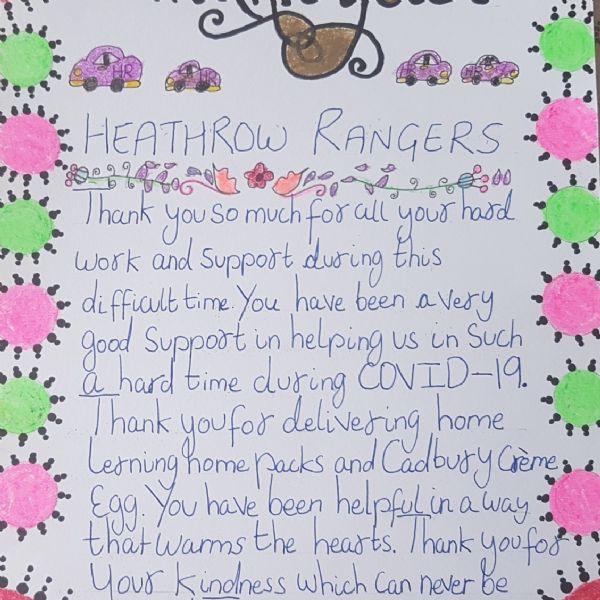 HEATHROW RANGERS
Thank you so much for all your hard
work and support during this
difficult time. You have been a very
good support in helping us in such
a hard time during COVID-19.
Thank you for delivering home
Lerning home packs and Cadbury Crème
Egg. You have been helpful in a way
that warms the hearts. Thank you for
Your kindness which can never be